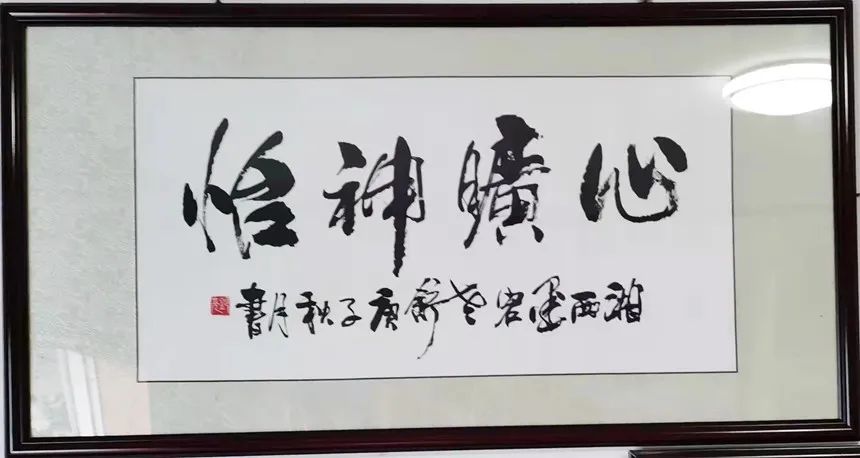 心曠神怡
湘西墨岩老爺庚子秋月書